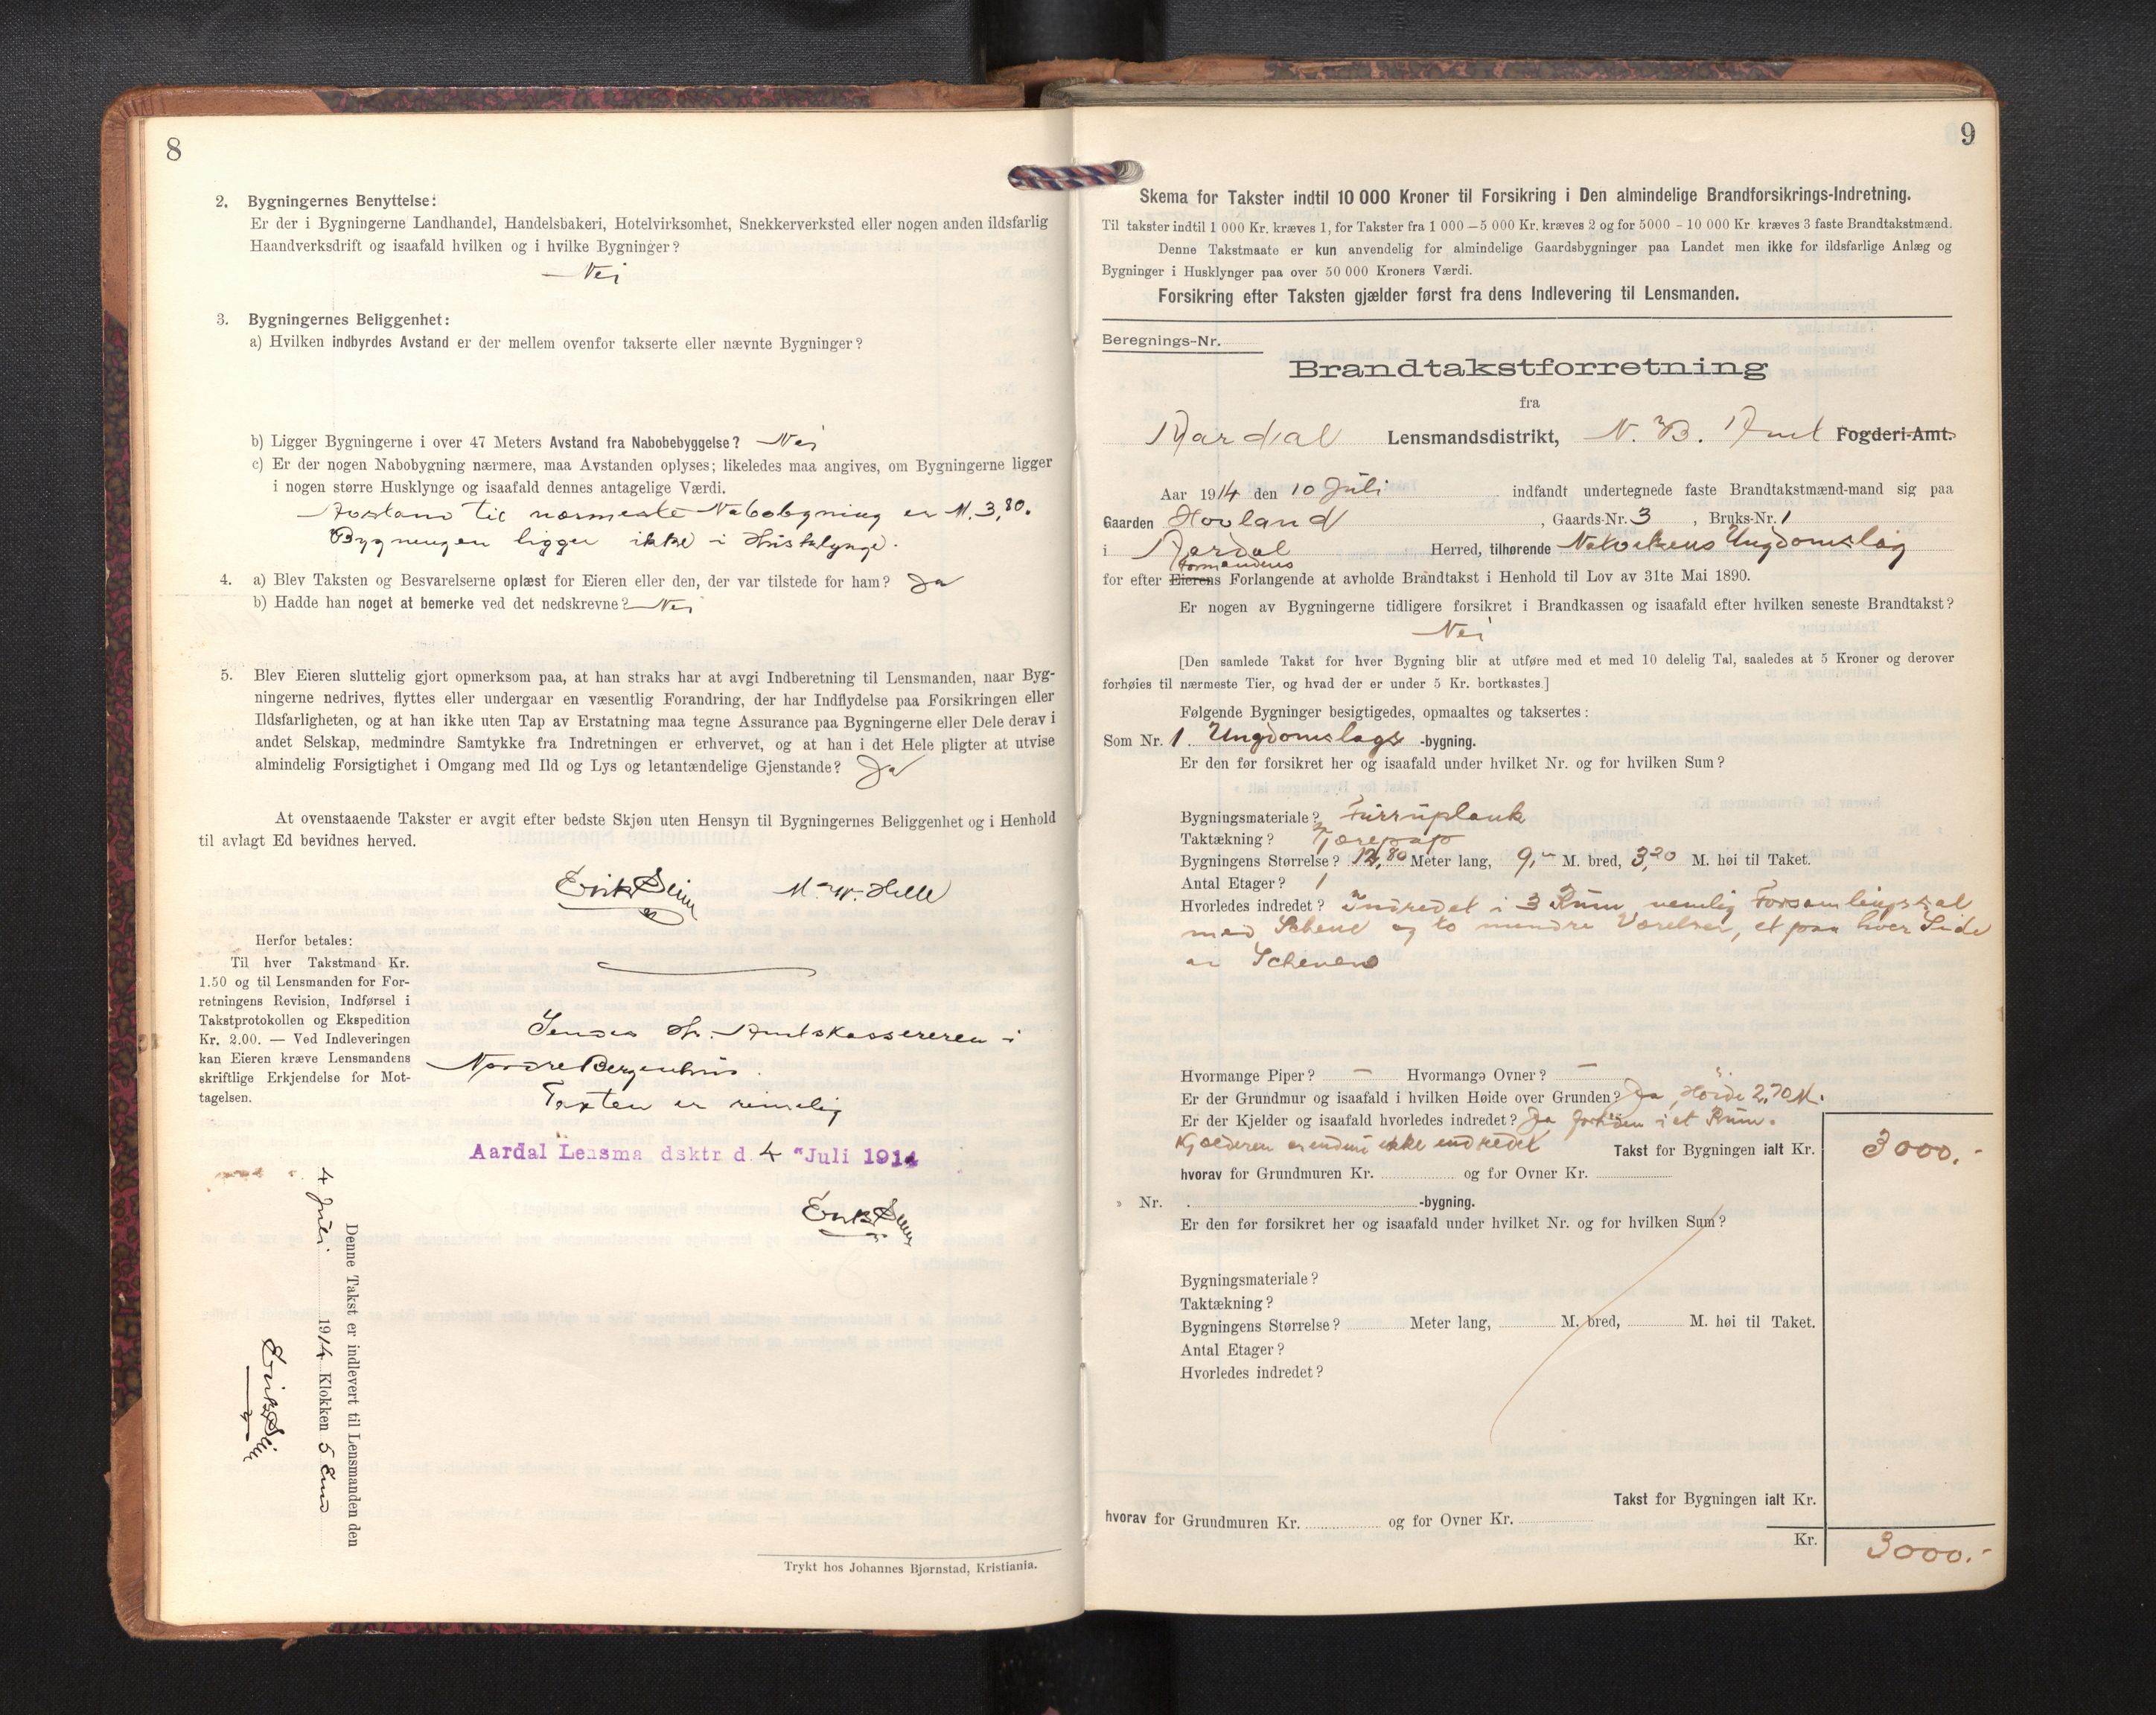 8
2. Bygningernes Benyttelse:
Er der i Bygningerne Landhandel, Handelsbakeri, Hotelvirksomhet, Snekkerverksted eller nogen anden ildsfarlig
Haandverksdrift og isaafald hvilken og i hvilke Bygninger?
Nei
3. Bygningernes Beliggenhet:
a) Hvilken indbyrdes Avstand er der mellem ovenfor takserte eller nævnte Bygninger?
b) Ligger Bygningerne i over 47 Meters Avstand fra Nabobebyggelse? Nei
c) Er der nogen Nabobygning nærmere, maa Avstanden oplyses; likeledes maa angives, om Bygningerne ligger
i nogen større Husklynge og isaafald dennes antagelige Værdi.
Avstand til nærmeste Nabobygning er M. 3,80.
Bygningen ligger ikke i Husklynge.
4. a) Blev Taksten og Besvarelserne oplæst for Eieren eller den, der var tilstede for ham? Ja
b) Hadde han noget at bemerke ved det nedskrevne? Nei
5. Blev Eieren sluttelig gjort opmerksom paa, at han straks har at avgi Indberetning til Lensmanden, naar Byg-
ningerne nedrives, flyttes eller undergaar en væsentlig Forandring, der har Indflydelse paa Forsikringen eller
Ildsfarligheten, og at han ikke uten Tap av Erstatning maa tegne Assurance paa Bygningerne eller Dele derav i
andet Selskap, medmindre Samtykke fra Indretningen er erhvervet, og at han i det Hele pligter at utvise
almindelig Forsigtighet i Omgang med Ild og Lys og letantændelige Gjenstande? Ja
At ovenstaaende Takster er avgit efter bedste Skjøn uten Hensyn til Bygningernes Beliggenhet og i Henhold
til avlagt Ed bevidnes herved.
Erik Seim M. W. Helle
Herfor betales:
Til hver Takstmand Kr.
1.50 og til Lensmanden for For-
retningens Revision, Indførsel i
Takstprotokollen og Ekspedition
Kr. 2.00. — Ved Indleveringen
kan Eieren kræve Lensmandens
skriftlige Erkjendelse for Mot-
tagelsen.
Sendes Hr. Amtskassereren i
Nordre Bergenhus.
Taxten er rimelig
Aardal Lensma dsktr d. 4 Juli 1914
Erik Seim
Denne Takst er indlevert til Lensmanden den
4 Juli 1914 Klokken 5 Emd
Erik Seim
Trykt hos Johannes Bjørnstad, Kristiania.
9
Skema for Takster indtil 10 000 Kroner til Forsikring i Den almindelige Brandforsikrings-Indretning.
Til takster indtil 1 000 Kr. kræves 1, for Takster fra 1 000 – 5 000 Kr. kræves 2 og for 5000 – 10 000 Kr. kræves 3 faste Brandtakstmænd.
Denne Takstmaate er kun anvendelig for almindelige Gaardsbygninger paa Landet men ikke for ildsfarlige Anlæg og
Bygninger i Husklynger paa over 50 000 Kroners Værdi.
Forsikring efter Taksten gjælder først fra dens Indlevering til Lensmanden.
Beregnings-Nr.
Brandtakstforretning
fra
Aardal Lensmandsdistrikt, N. B. Amt Fogderi-Amt.
Aar 1914 den 10 Juli indfandt undertegnede faste Brandtakstmænd-mand sig paa
Gaarden Hovland, Gaards-Nr. 3, Bruks-Nr. 1
i Aardal Herred, tilhørende Natvikens Ungdomslag
Formandens
for efter Eierens Forlangende at avholde Brandtakst i Henhold til Lov av 31te Mai 1890.
Er nogen av Bygningerne tidligere forsikret i Brandkassen og isaafald efter hvilken seneste Brandtakst?
Nei
[Den samlede Takst for hver Bygning blir at utføre med et med 10 delelig Tal, saaledes at 5 Kroner og derover
forhøies til nærmeste Tier, og hvad der er under 5 Kr. bortkastes.]
Følgende Bygninger besigtigedes, opmaaltes og taksertes:
Som Nr. 1. Ungdomslags -bygning.
Er den før forsikret her og isaafald under hvilket Nr. og for hvilken Sum?
Bygningsmateriale? Furruplank
Taktækning? Tjærepap
Bygningens Størrelse? 12,80 Meter lang, 9,- M. bred, 3,20 M. høi til Taket.
Antal Etager? 1
Hvorledes indredet? Indredet i 3 Rum nemlig Forsamlingssal
med Schene og to mindre Værelser, et paa hver Side
av Schenen
Hvormange Piper? — Hvormange Ovner? —
Er der Grundmur og isaafald i hvilken Høide over Grunden? Ja, Høide 2,70 M.
Er der Kjelder og isaafald hvorledes indredet? Ja i et Rum.
Kjælderen er endnu ikke indredet Takst for Bygningen ialt Kr. 3000.-
hvorav for Grundmuren Kr. og for Ovner Kr.
» Nr. . -bygning.
Er den før forsikret her og isaafald under hvilket Nr. og for hvilken Sum?
Bygningsmateriale?
Taktækning?
Bygningens Størrelse? Meter lang, M. bred, M. høi til Taket.
Antal Etager?
Hvorledes indredet?
Takst for Bygningen ialt Kr.
hvorav for Grundmuren Kr. og for Ovner Kr.
Kr. 3000.-